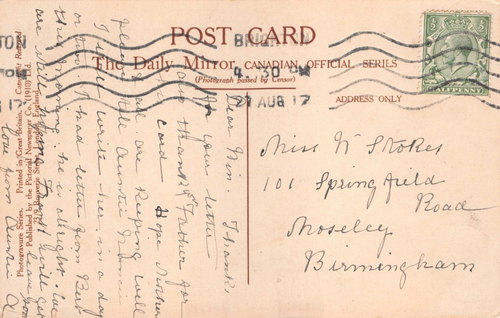 POST CARD
The Daily Mirror CANADIAN OFFICIAL SERIES
(Photograph passed by Censor)
BRIGHTON
30 PM
27 AUG 17
HALFPENNY
ADDRESS ONLY
Miss W Stokes
101 Springfield
Road
Moseley
Birmingham
Dear Win. Thanks
for your letter
also thank Father for
his card Hope Mother
& all are keeping well
please tell Auntie
I will write her in a day
or two. I had letter from Bert
this morning. he is alright. he
get
leave
love from Auntie
Photogravure Series. Printed in Great Britain. Copyright Reserved
Published by the Pictorial Newspaper Co. (1910) Ltd.
23/29 Bouverie Street, London, England.